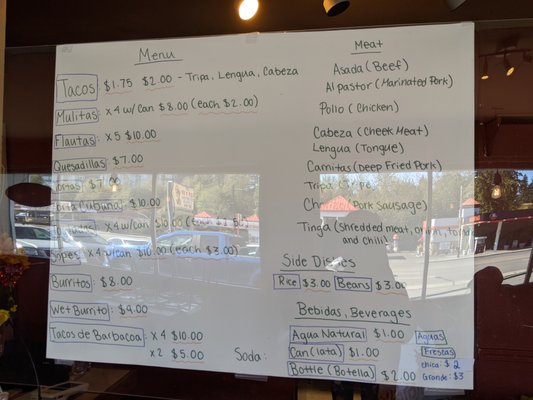 Menu
Tacos: $1.75 $2.00 - Tripa, Lengua, Cabeza
Mulitas: x4 w/can $8.00 (each $2.00)
Flautas: x5 $10.00
Quesadillas: $7.00
Tortas: $7
Torta Cubana: $10.00
x4 w/can $10 (each
Sopes x4 w/can $10.00 (each $3.00)
Burritos: $8.00
Wet Burrito: $9.00
Tacos de Barbacoa: x4 $10.00
x2 $5.00
Soda:
Meat
Asada (Beef)
Al pastor (Marinated Pork)
Pollo (Chicken)
Cabeza (Cheek Meat)
Lengua (Tongue)
Carnitas (Deep Fried Pork)
Tripa
Pork Sausage)
Tinga (shredded meat, onion,
and chili)
Side Dishes
Rice $3.00 Beans $3.00
Bebidas, Beverages
Agua Natural $1.00
Can (lata) $1.00
Bottle (Botella) $2.00
Aguas
Frescas
chica: $2
Grande: $3